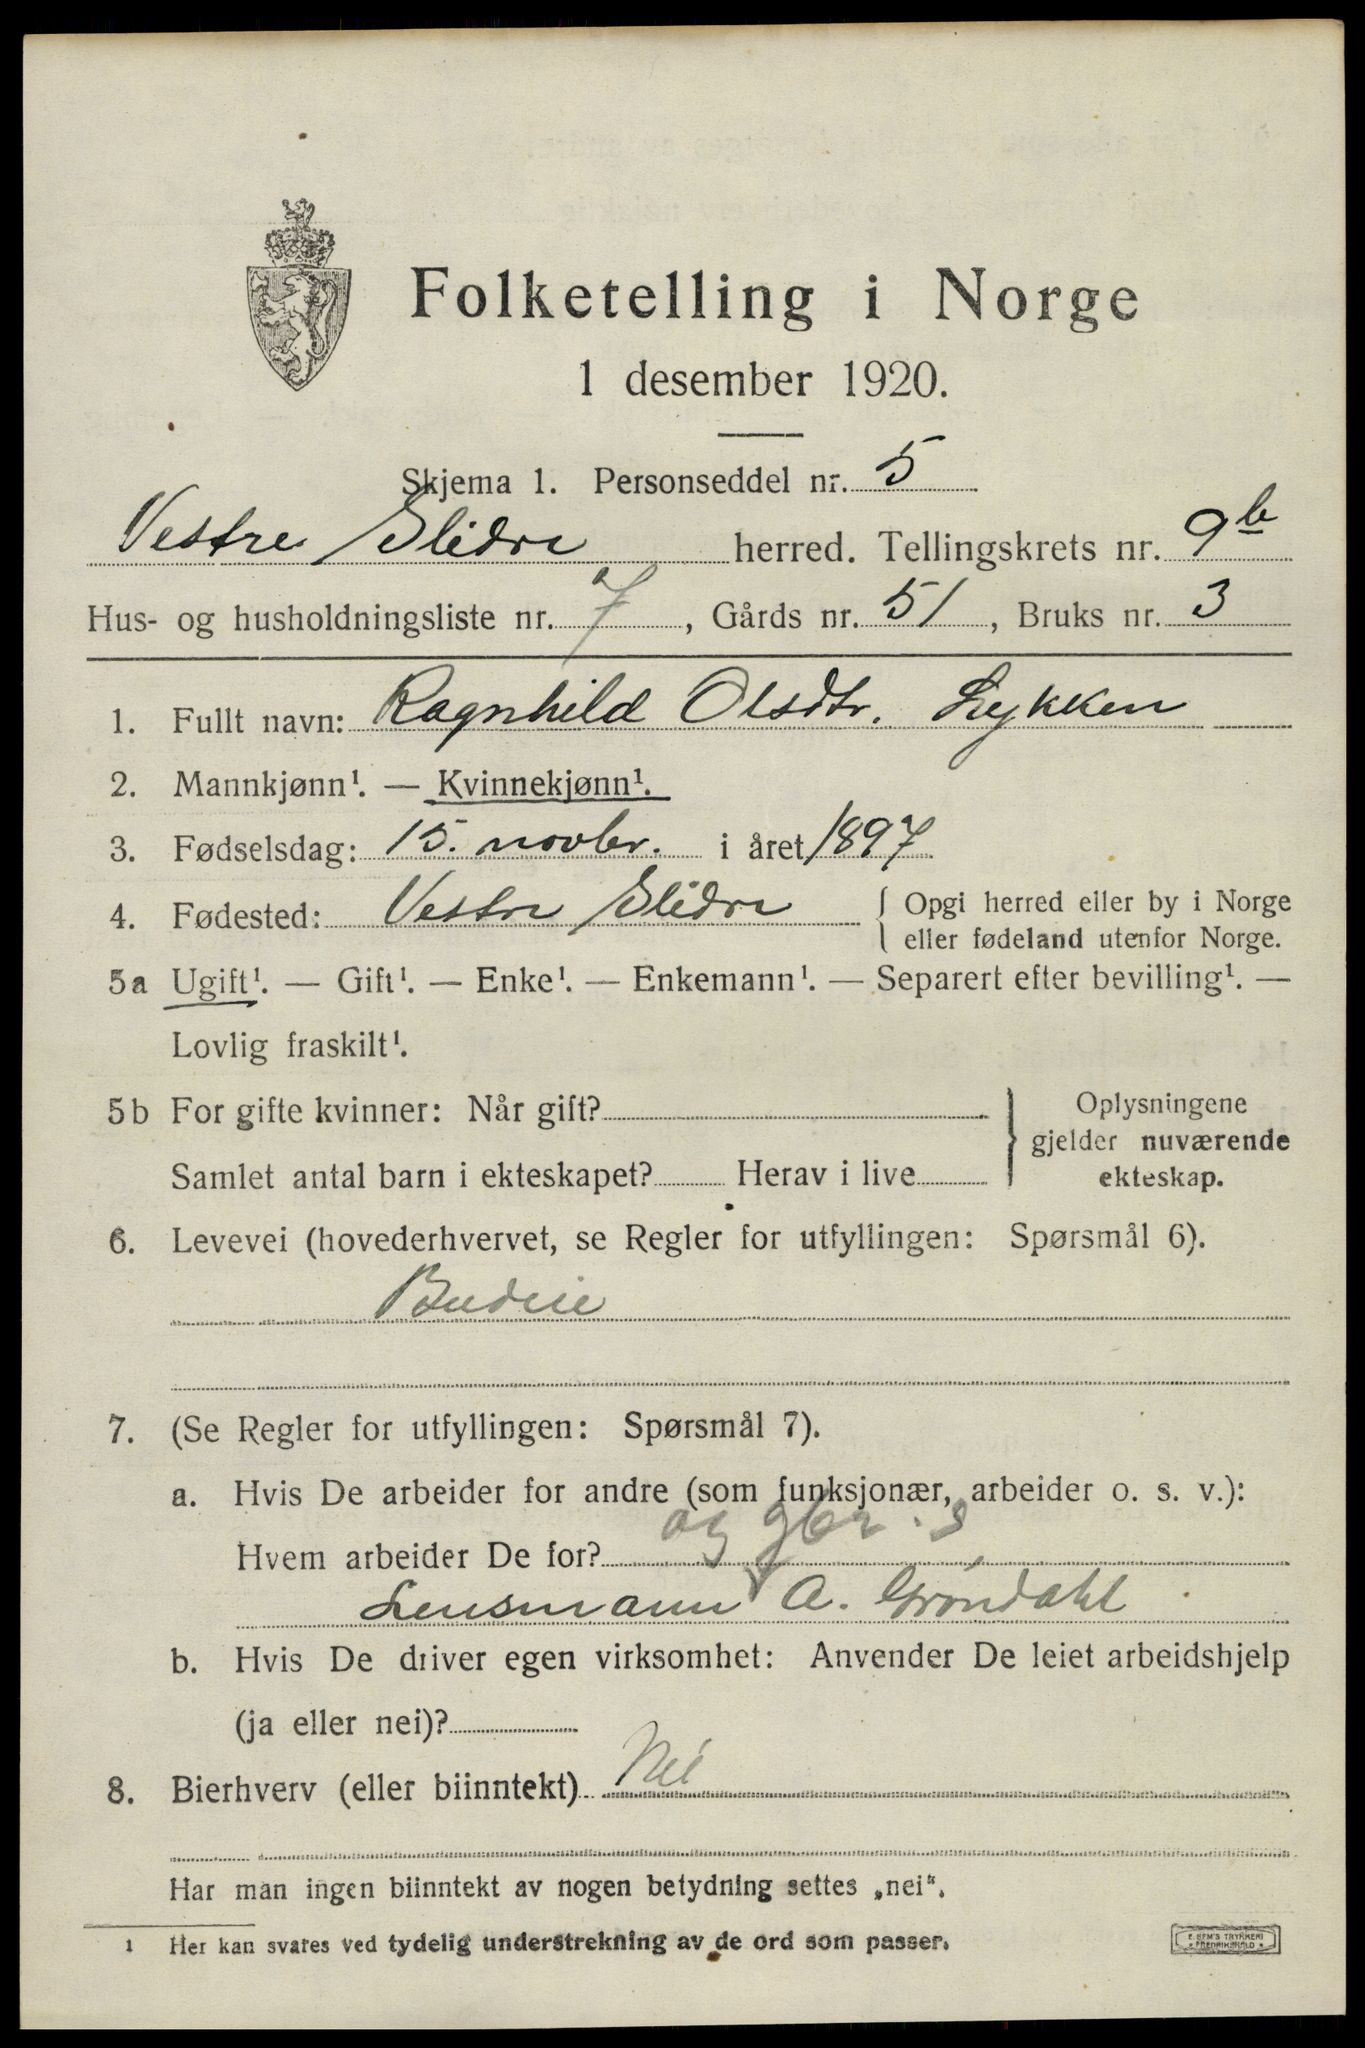 Folketelling i Norge
1 desember 1920.
Skjema 1. Personseddel nr. 5
Vestre Slidre herred. Tellingskrets nr. 9b
Hus- og husholdningsliste nr. 7, Gårds nr. 51, Bruks nr. 3
1. Fullt navn: Ragnhild Olsdtr. Lykken
2. Mannkjønn¹. — Kvinnekjønn¹.
3. Fødselsdag: 15. novbr. i året 1897
4. Fødested: Vestre Slidre { Opgi herred eller by i Norge
eller fødeland utenfor Norge.
5a Ugift¹. — Gift¹. — Enke¹. — Enkemann¹. — Separert efter bevilling¹. —
Lovlig fraskilt¹.
5b For gifte kvinner: Når gift? } Oplysningene
gjelder nuværende
Samlet antal barn i ekteskapet? Herav i live ekteskap.
6. Levevei (hovederhvervet, se Regler for utfyllingen: Spørsmål 6).
Budeie
7. (Se Regler for utfyllingen: Spørsmål 7).
a. Hvis De arbeider for andre (som funksjonær, arbeider o. s. v.):
Hvem arbeider De for? og gbr. s
Lensmann A. Grøndahl
b. Hvis De driver egen virksomhet: Anvender De leiet arbeidshjelp
(ja eller nei)?
8. Bierhverv (eller biinntekt) Nei
Har man ingen biinntekt av nogen betydning settes „nei“.
1 Her kan svares ved tydelig understrekning av de ord som passer.
E. SEM'S TRYKKERI
FREDRIKSHALD